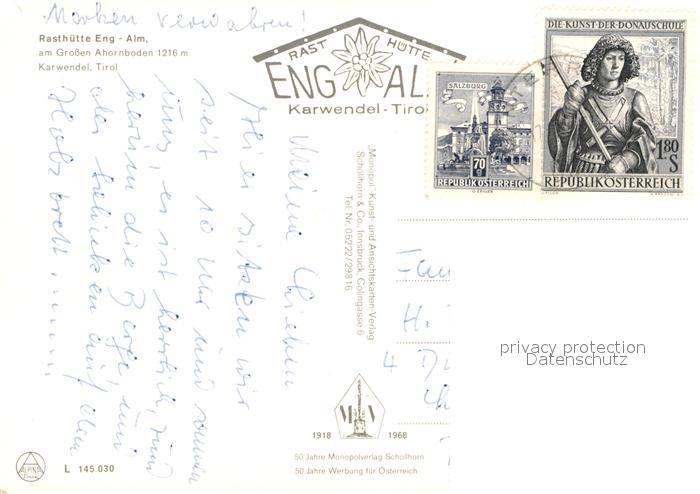 Marken verwahren!
Rasthütte Eng - Alm,
am Großen Ahornboden 1216 m
Karwendel, Tirol
RAST HÜTTE
ENG AL
Karwendel - Tirol
SALZBURG
70 g
REPUBLIK ÖSTERREICH
DIE KUNST DER DONAUSCHULE
1.80 S
REPUBLIK ÖSTERREICH
Meine Lieben
Hier sitzen wir
seit 10 Uhr und sonnen
uns, es ist herrlich, rund
herum die Berge, und
der Schinken auf dem
Holzbrett.......
„Monopol" Kunst- und Ansichtskarten-Verlag
Schöllhorn & Co., Innsbruck, Colingasse 6
Tel. Nr. 05222/29816
Fam
H.
4 Dü
privacy protection
Datenschutz
M V
1918 1968
50 Jahre Monopolverlag Schöllhorn
50 Jahre Werbung für Österreich
ALPINA
L 145 030